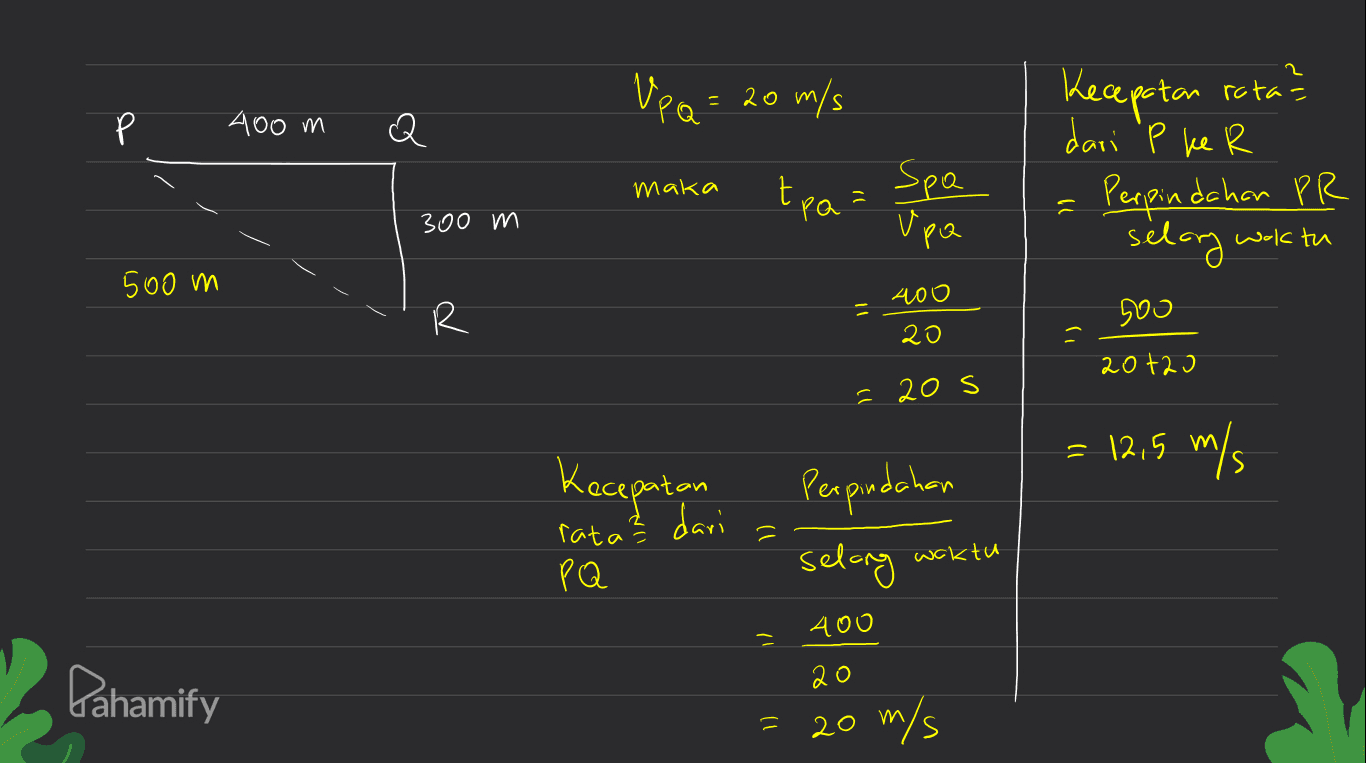 P 400 m Q
300 m
500 m
R
V PQ = 20 m/s
maka t PQ = S PQ / V PQ
= 400 / 20
= 20 s
Kecepatan rata² dari PQ = Perpindahan / selang waktu
= 400 / 20
= 20 m/s
Kecepatan rata²
dari P ke R
= Perpindahan PR / selang waktu
= 500 / 20+20
= 12,5 m/s
Pahamify